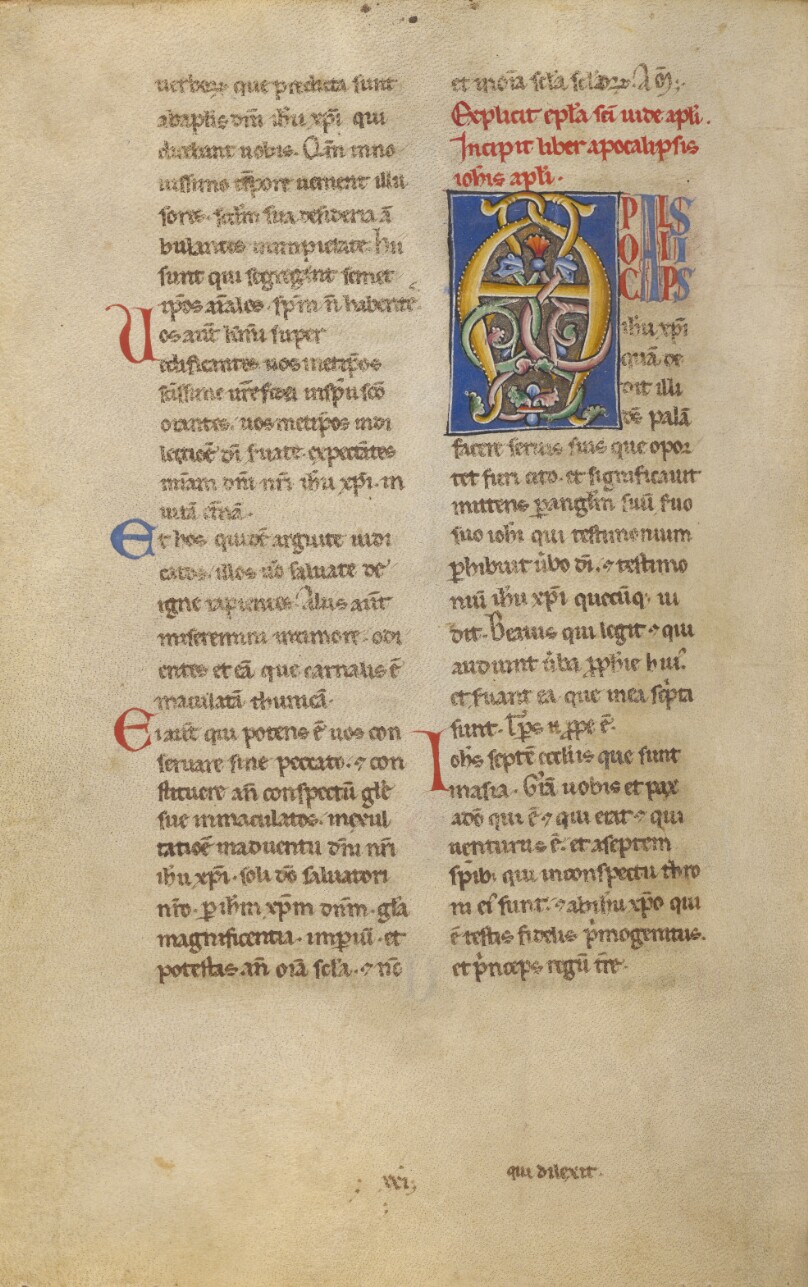 uerboꝝ que predicta sunt
abaplis dñi ih̅u xp̅i qui
dicebant uobis. Qm̅ inno
uissimo tp̅ore uenient illu
sores. scd̅m sua desideria ā
bulantes inimpietate. hii
sunt qui segregant semet
ip̅os aīales. sp̅m n̅ habente
Uos aut̅ kr̅mi super
edificantes uosmetip̅os
sc̅issime ur̅e fidei insp̅u sc̅o
orantes. uosmetip̅os indi
lectioē di̅ seruate. expectātes
mīam dñi nr̅i ih̅u xp̅i. in
uitā et̅nā.
Et hos quidē arguite iudi
catos. illos u̅o saluate de
igne rapientes. Aliis aut̅
miseremini intimore. odi
entes et eā que carnalis ē
maculatā thunicā.
Ei aut̅ qui potens ē uos con
seruare sine peccato. ⁊ con
stituere an̅ conspectū gl̅e
sue inmaculatos. inexul
tatioē inaduentu dñi nr̅i
ih̅u xp̅i. soli dō saluatori
nr̅o. ꝑ ih̅m xp̅m dñm. gl̅a
magnificentia. imꝑiū. et
potestas. an̅ oīa scl̅a. ⁊ nc̅
et inoīa scl̅a scl̅oꝝ. Am̅.
Explicit epl̅a sc̅i iude apl̅i.
Incipit liber apocalipsis
ioh̅is apl̅i.
APOCALIPSIS
ih̅u xp̅i
quā de
dit illi
ds̅ palā
facere seruis suis que opor
tet fieri cito. et significauit
mittens ꝑ angl̅m suū suo
suo ioh̅i qui testimonium
ꝑhibuit u̅bo di̅. ⁊ testimo
niū ih̅u xp̅i quecūq; ui
dit. Beatus qui legit ⁊ qui
audiunt u̅ba ꝓphie hui᾽.
et s̅uant ea que inea sc̅pta
sunt. Tp̅s n̅ ꝓpe ē.
Ioh̅s septē eccl̅iis que sunt
inasia. Gr̅a uobis et pax
abeo qui ē ⁊ qui erat ⁊ qui
uenturus ē. et aseptem
sp̅ib; qui inconspectu thro
ni ei᾽ sunt. ⁊ abih̅u xp̅o qui
ē testis fidelis p̅mogenitus.
et p̅nceps regū tr̅e.
xxi;
qui dilexit.